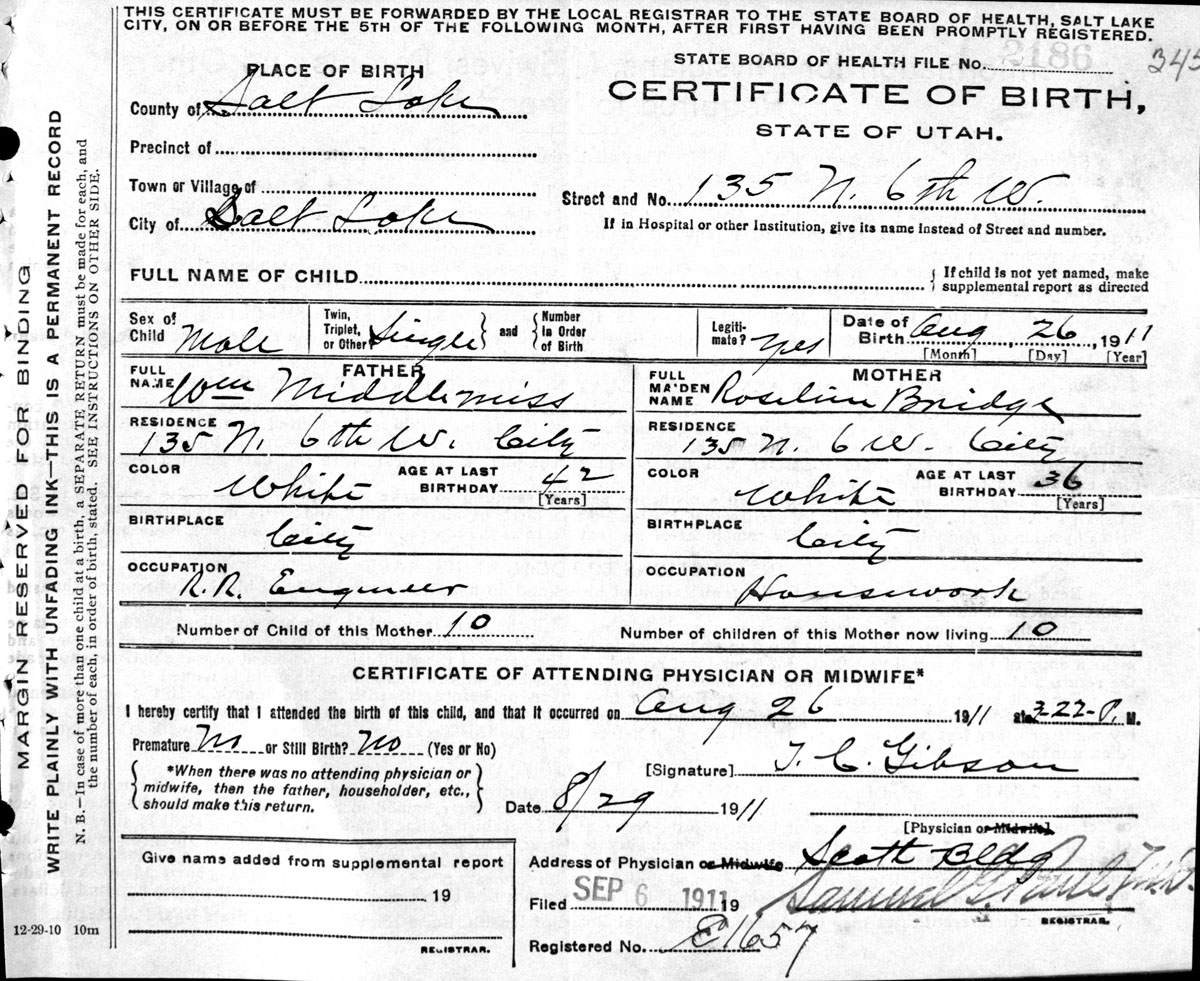 THIS CERTIFICATE MUST BE FORWARDED BY THE LOCAL REGISTRAR TO THE STATE BOARD OF HEALTH, SALT LAKE
CITY, ON OR BEFORE THE 5TH OF THE FOLLOWING MONTH, AFTER FIRST HAVING BEEN PROMPTLY REGISTERED.
STATE BOARD OF HEALTH FILE No. 2186
345
PLACE OF BIRTH
CERTIFICATE OF BIRTH,
STATE OF UTAH.
County of Salt Lake
Precinct of
Town or Village of
City of Salt Lake
Street and No. 135 N. 6th W.
If in Hospital or other Institution, give its name instead of Street and number.
FULL NAME OF CHILD
If child is not yet named, make
supplemental report as directed
Sex of Child Male
Twin, Triplet, or Other? Single and Number in Order of Birth
Legiti-mate? Yes
Date of Birth Aug 26 1911
[Month] [Day] [Year]
FATHER
FULL NAME Wm Middlemiss
RESIDENCE
135 N. 6th W. City
COLOR White AGE AT LAST BIRTHDAY 42
[Years]
BIRTHPLACE
City
OCCUPATION
R.R. Engineer
MOTHER
FULL MAIDEN NAME Roseline Bridge
RESIDENCE
135 N. 6 W. City
COLOR White AGE AT LAST BIRTHDAY 36
[Years]
BIRTHPLACE
City
OCCUPATION
Housework
Number of Child of this Mother 10 Number of children of this Mother now living 10
CERTIFICATE OF ATTENDING PHYSICIAN OR MIDWIFE*
I hereby certify that I attended the birth of this child, and that it occurred on Aug 26 1911 at 3-22-P. M.
Premature No or Still Birth? No (Yes or No)
*When there was no attending physician or
midwife, then the father, householder, etc.,
should make this return.
[Signature] T. C. Gibson
Date 8/29 1911
[Physician or Midwife]
Give name added from supplemental report
19
REGISTRAR.
Address of Physician or Midwife Scott Bldg
Filed SEP 6 1911 19
Samuel G. Paul
REGISTRAR.
Registered No. E1657
12-29-10 10m
MARGIN RESERVED FOR BINDING
WRITE PLAINLY WITH UNFADING INK—THIS IS A PERMANENT RECORD
N. B.—In case of more than one child at a birth, a SEPARATE RETURN must be made for each, and
the number of each, in order of birth, stated. SEE INSTRUCTIONS ON OTHER SIDE.